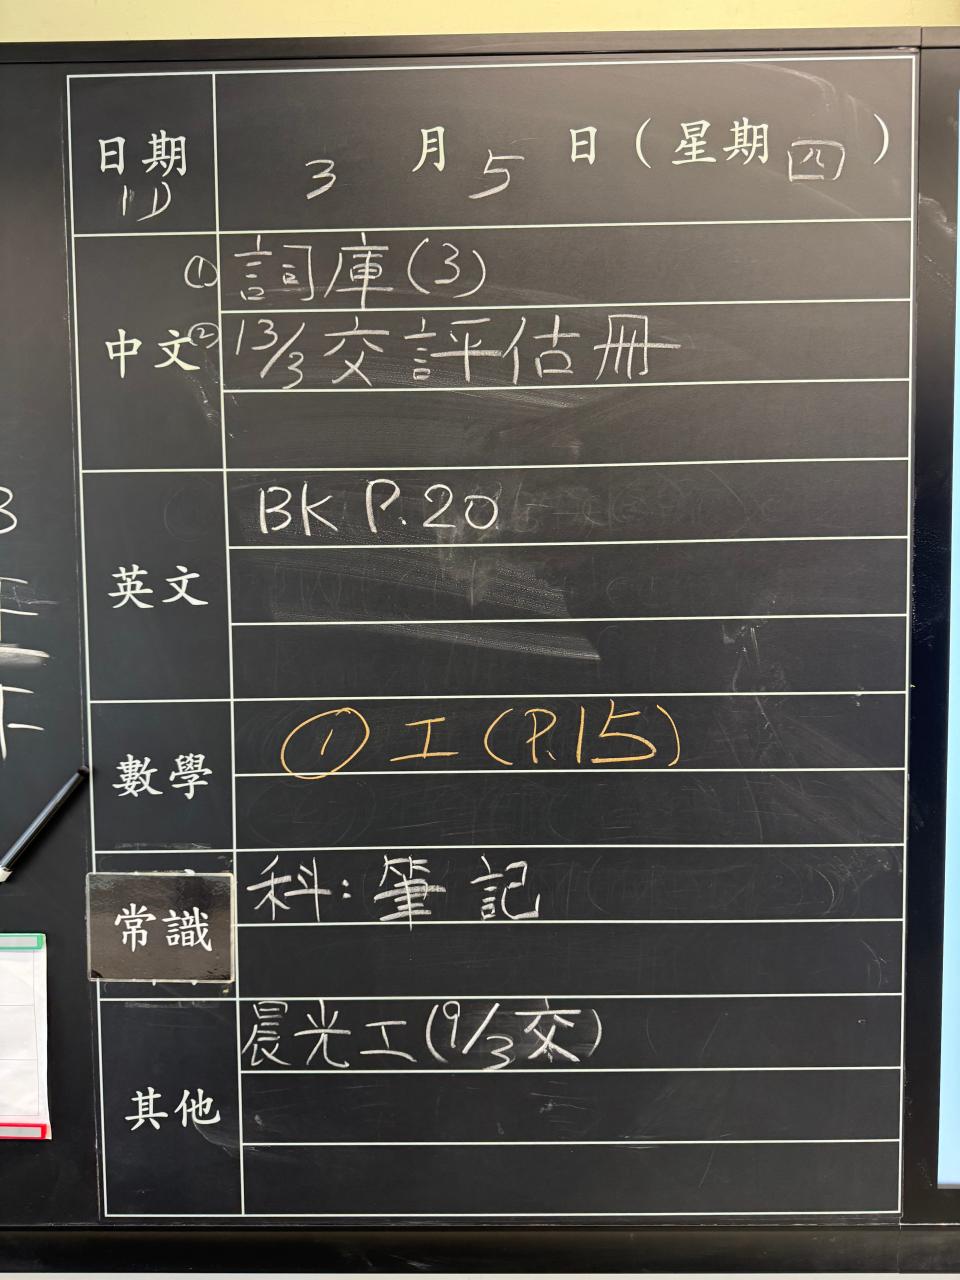 日期 3月5日(星期四)
1D
中文
① 詞庫(3)
② 13/3交評估冊
英文
BK P.20
數學
① 工(P.15)
常識
科:筆記
其他
晨光工(9/3交)